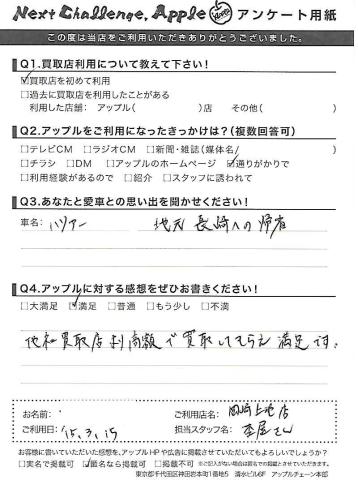 Next Challenge, Apple アンケート用紙
この度は当店をご利用いただきありがとうございました。
Q1.買取店利用について教えて下さい!
☑買取店を初めて利用
□過去に買取店を利用したことがある
利用した店舗: アップル( )店 その他( )
Q2.アップルをご利用になったきっかけは?(複数回答可)
□テレビCM □ラジオCM □新聞・雑誌(媒体名/ )
□チラシ □DM □アップルのホームページ ☑通りがかりで
□利用経験があるので □紹介 □スタッフに誘われて
Q3.あなたと愛車との思い出を聞かせください!
車名: ハリアー 地元 長崎への帰省
Q4.アップルに対する感想をぜひお書きください!
□大満足 ☑満足 □普通 □もう少し □不満
他社買取店より高額で買取してもらえ満足です。
お名前: ご利用店名: 岡崎上地店
ご利用日: 15.3.15 担当スタッフ名: さん
お客様に書いていただいた感想を、アップルHPや広告に掲載させていただいてもよろしいでしょうか?
□実名で掲載可 ☑匿名なら掲載可 □掲載不可 ※ご記入がない場合は匿名での掲載とさせていただきます。
東京都千代田区神田岩本町1番地5 清水ビル6F アップルチェーン本部